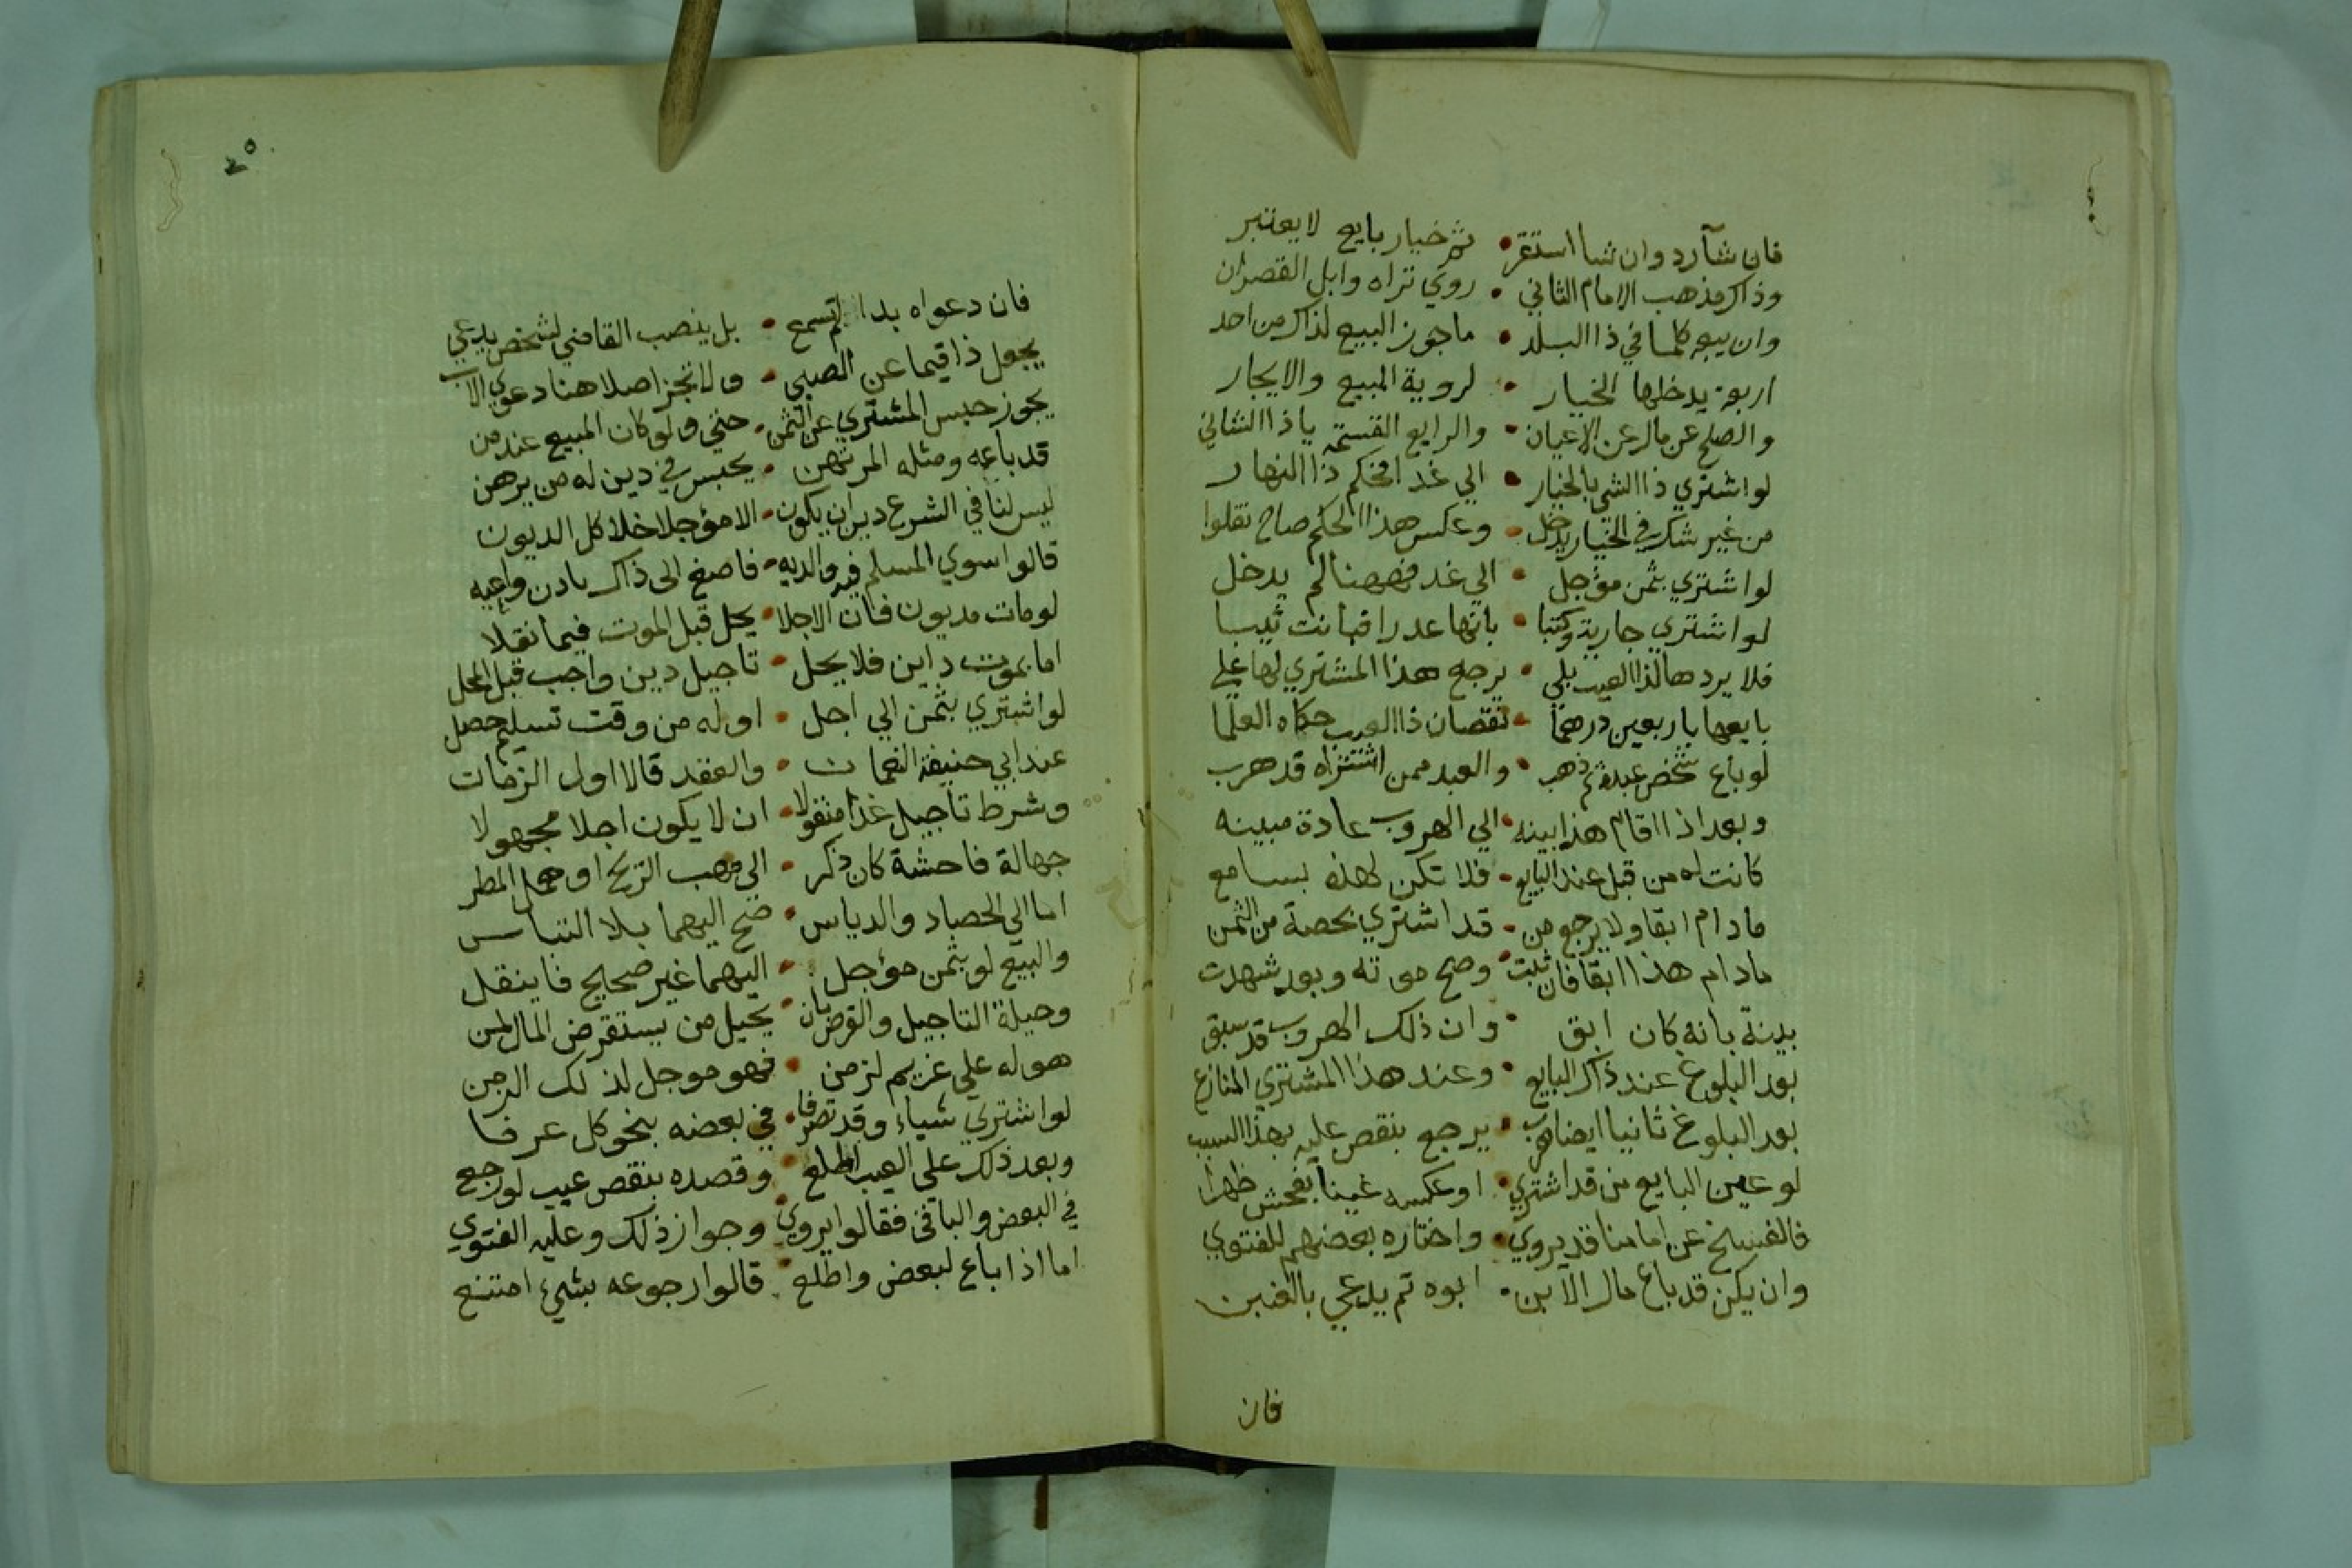 فان شآرد وان شا استقر • ثم خيار بايع لا يعتبر
وذاك مذهب الامام الثاني • روي تراه وابل القصران
وان يبع كلما في ذا البلد • ما جوز البيع لذاك من احد
اربعة يدخلها الخيار • لروية المبيع والايجار
والصلح عن مال عن الاعيان • والرابع القسمة يا ذا الشاني
لو اشتري ذا الشي بالخيار • الي غد افحكم ذا النهار
من غير شك في الخيار يدخل • وعكس هذا الحكم صاح نقلوا
لو اشتري بثمن مؤجل • الي غد فههنا لم يدخل
لو اشتري جارية وكتبا • بانها عدرا فبانت ثيبا
فلا يردها لذا العيب بلي • يرجع هذا المشتري لها علي
بايعها باربعين درهما • نقصان ذا العيب حكاه العلما
لو باع شخص عبده ثم ذهب • والعبد ممن اشتراه قد هرب
وبعد اذا اقام هذا بينه • الي الهروب عادة مبينه
كانت له من قبل عند البايع • فلا تكن لهذه بسامع
مادام ابقا ولا يرجع من • قد اشتري بحصة من الثمن
مادام هذا ابقا فان ثبت • وصح موته وبعد شهدت
بينة بانه كان ابق • وان ذلك الهروب قد سبق
بعد البلوغ عند ذاك البايع • وعند هذا المشتري المنازع
بعد البلوغ ثانيا ايضا هرب • يرجع بنقص عليه بهذا السبب
لو عين البايع من قد اشتري • او عكسه غبنا بفحش ظهرا
فالفسخ عن امامنا قد يروي • واختاره بعضهم للفتوي
وان يكن قد باع مال الابن • ابوه ثم يدعي بالغبن
فان
٢٥
فان دعواه بدا لم تسمع • بل ينصب القاضي لشخص يدعي
يجعل ذا قيما عن الصبي • ولا تجز اصلا هنا دعوي الاب
يجوز حبس المشتري عن الثمن • حتي ولو كان المبيع عند من
قد باعه ومثله المرتهن • يحبس في دين له من يرهن
ليس لنا في الشرع دين ان يكون • الا مؤجلا خلا كل الديون
قالوا سوي المسلم فيه والديه • فاصغ الى ذاك بادن واعيه
لو مات مديون فان الاجلا • يحل قبل الموت فيما نقلا
اما بموت داين فلا يحل • تاجيل دين واجب قبل المحل
لو اشتري بثمن الي اجل • اوله من وقت تسليم حصل
عند ابي حنيفة النعمان • والعقد قالا اول الزمان
وشرط تاجيل غدا منقولا • ان لا يكون اجلا مجهولا
جهالة فاحشة كان ذكر • الى مهب الريح او همل المطر
اما الي الحصاد والدياس • صح اليهما بلا التباس
والبيع لو بثمن مؤجل • اليهما غير صحيح فاينقل
وحيلة التاجيل والقرض بان • يحيل من يستقرض المال لمن
هو له علي غريم لزمن • فهو موجل لذلك الزمن
لو اشتري شياء وقد تصرفا • في بعضه بنحو كل عرفا
وبعد ذلك علي العيب اطلع • وقصده بنقص عيب لو رجع
في البعض والباقي فقالوا يروي • وجواز ذلك وعليه الفتوي
اما اذا باع لبعض واطلع • قالوا رجوعه بشيء امتنع